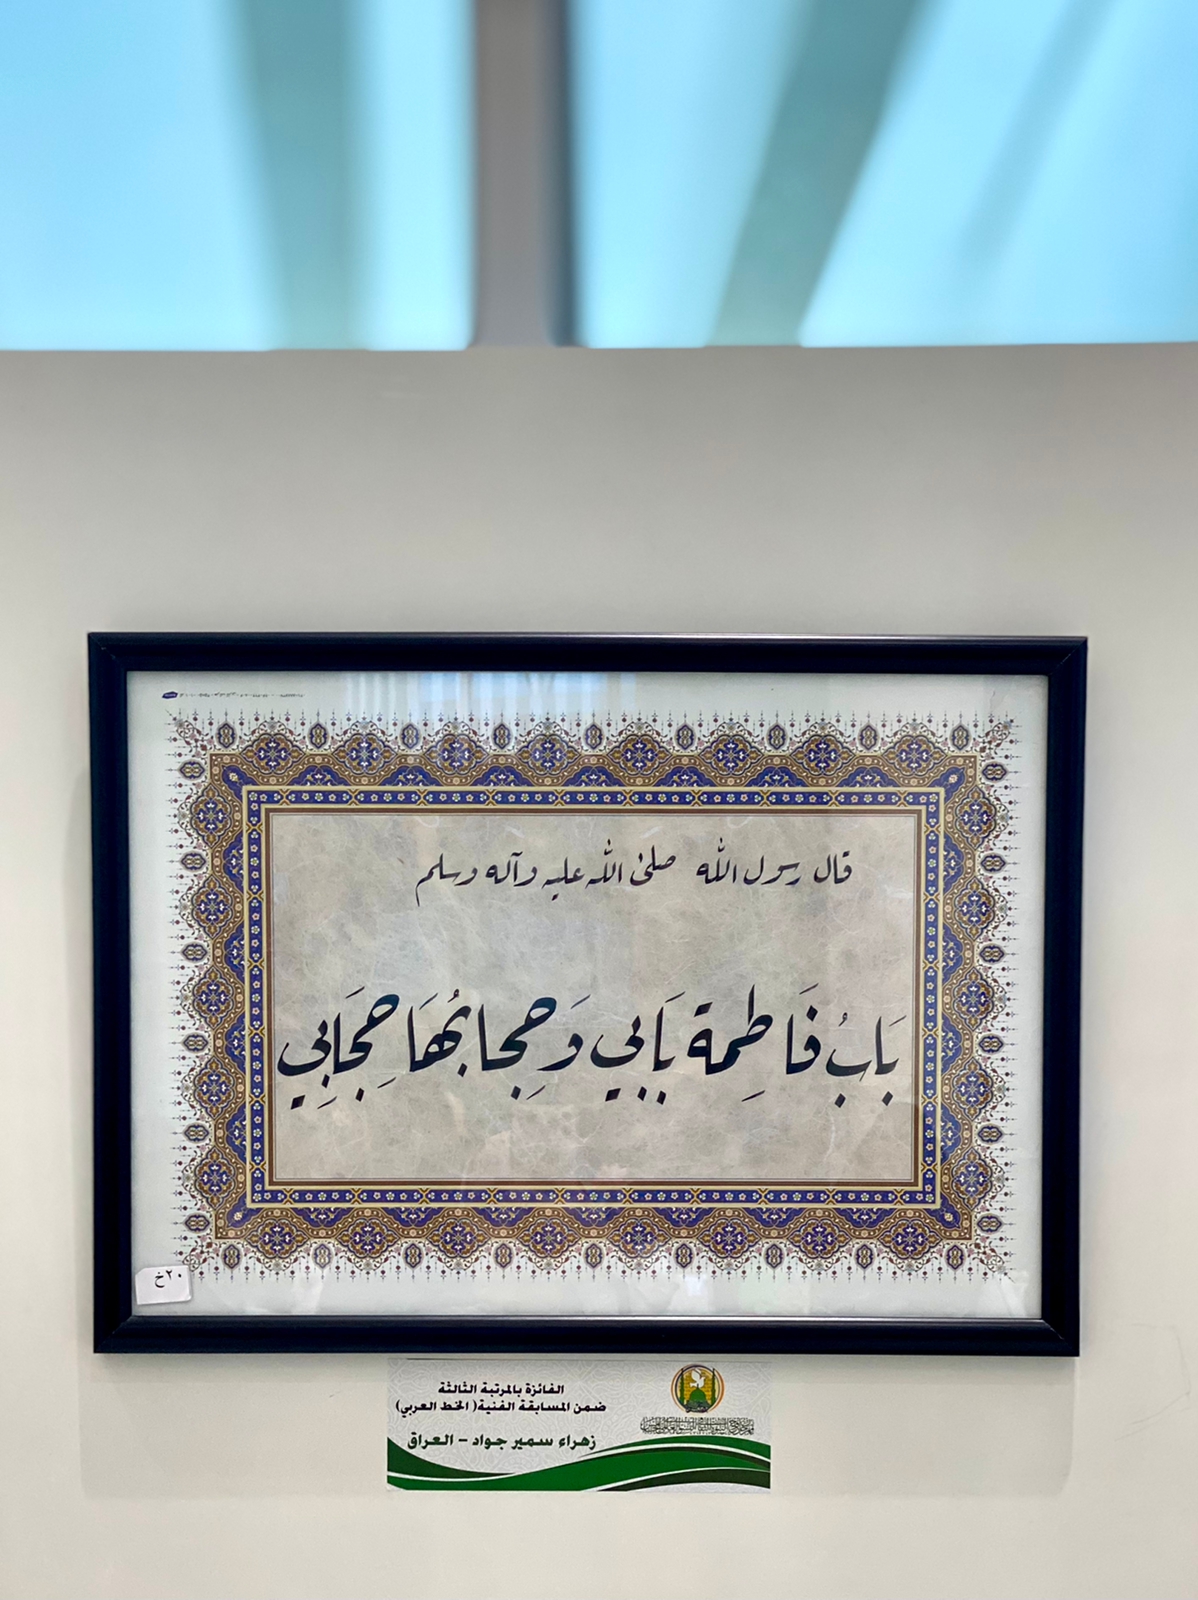 قال رسول الله صلى الله عليه وآله وسلم
بَابُ فَاطِمة بَابي وَحِجابُهَا حِجَابِي
٢٠خ
الفائزة بالمرتبة الثالثة
ضمن المسابقة الفنية( الخط العربي)
زهراء سمير جواد - العراق